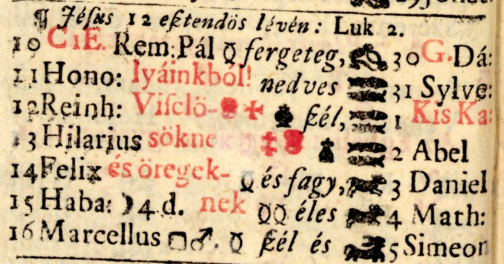 ¶ Jésus 12 esztendös lévén: Luk 2.
10 C 1 E. Rem: Pál ☿ fergeteg, 30 G. Dá:
11 Hono: lyáinkból! nedves 31 Sylve:
12 Reinh: Viselö- szél, 1 Kis Ka:
13 Hilarius sökne 2 Abel
14 Felix és öregek- és fagy, 3 Daniel
15 Haba: ☽ 4. d. nek éles 4 Math:
16 Marcellus □ ♂. ☿ szél és 5 Simeon